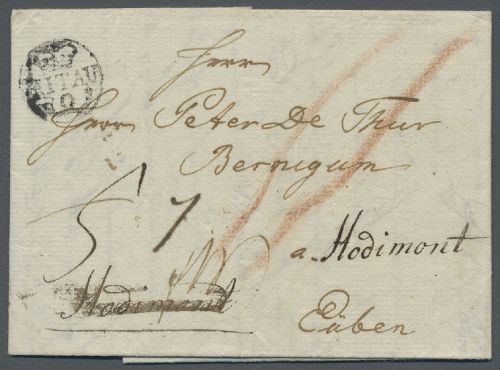 MITAU
Herr
Herr Peter De Thur
Bernigum
5 7
a Hodimont
Hodimont
Eüben